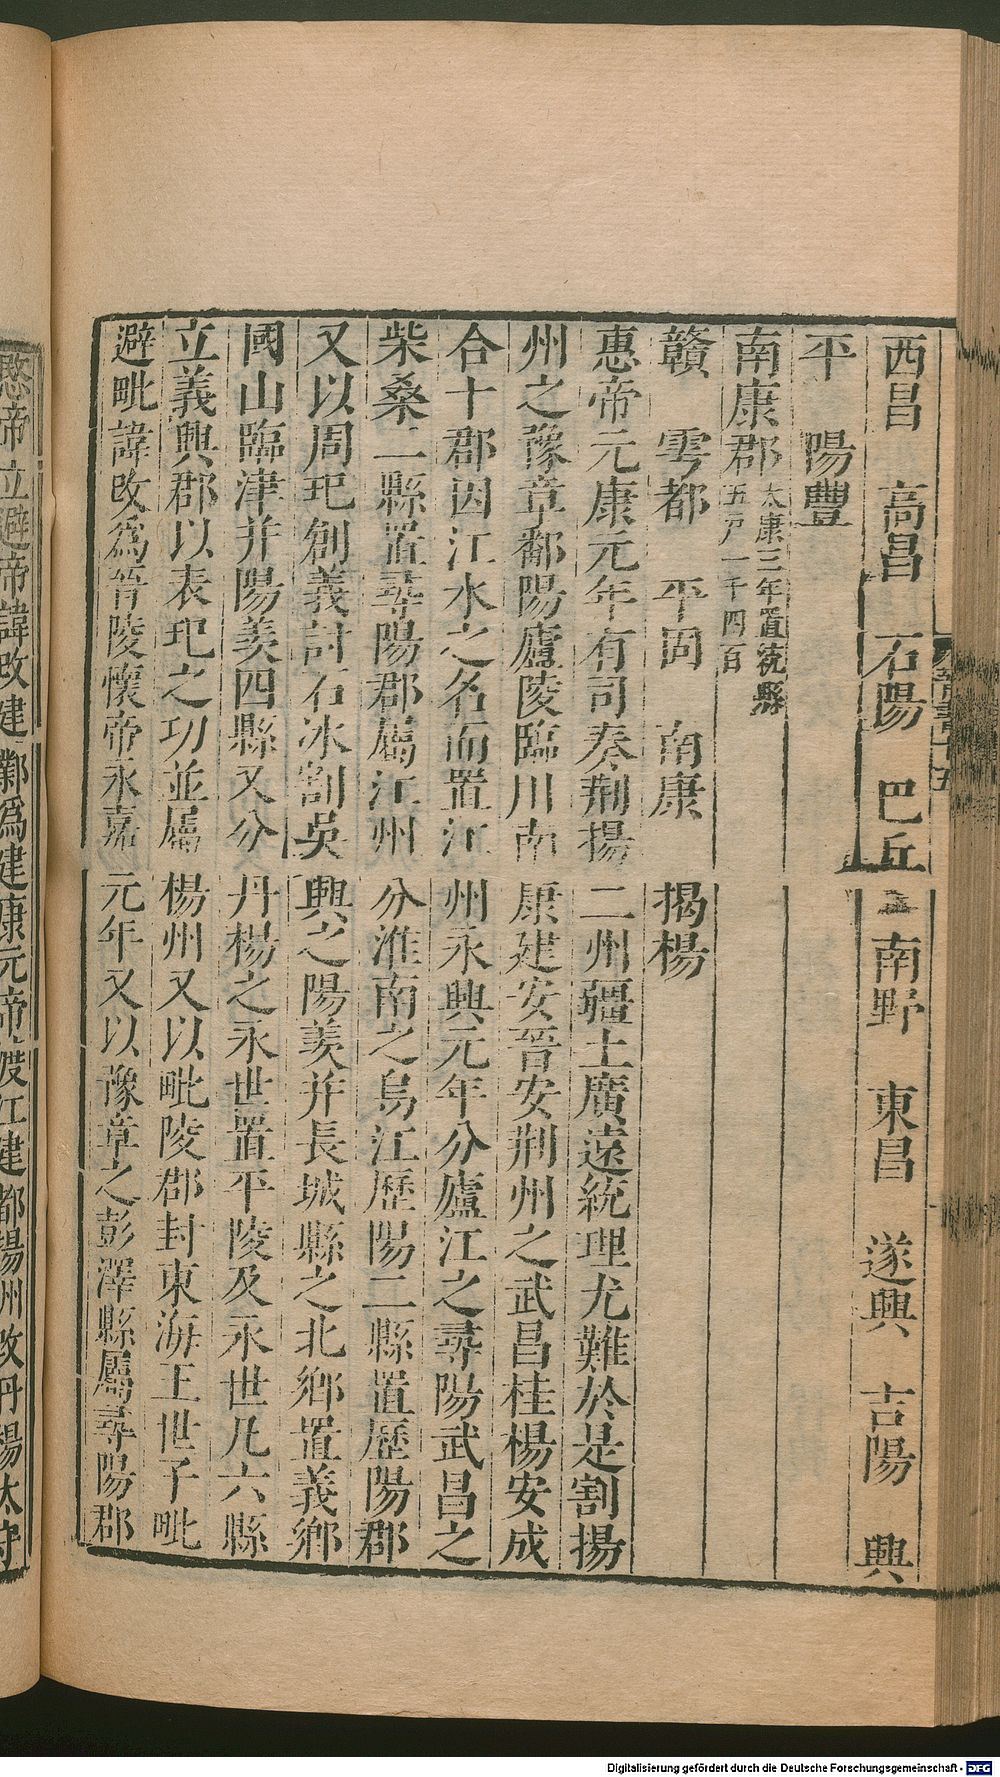 西昌 高昌 石陽 巴丘 南野 東昌 遂興 吉陽 興
平 陽豐
南康郡 太康三年置統縣五戸一千四百
贛 雩都 平固 南康 揭楊
惠帝元康元年有司奏荆揚二州疆土廣遠統理尤難於是割揚
州之豫章鄱陽廬陵臨川南康建安晉安荆州之武昌桂楊安成
合十郡因江水之名而置江州永興元年分廬江之尋陽武昌之
柴桑二縣置尋陽郡屬江州分淮南之烏江歷陽二縣置歷陽郡
又以周玘創義討石冰割吳興之陽羨并長城縣之北鄉置義鄉
國山臨津并陽羨四縣又分丹楊之永世置平陵及永世凡六縣
立義興郡以表玘之功並屬楊州又以毗陵郡封東海王世子毗
避毗諱改爲晉陵懷帝永嘉元年又以豫章之彭澤縣屬尋陽郡
愍帝立避帝諱改建鄴爲建康元帝渡江建都揚州改丹楊太守
Digitalisierung gefördert durch die Deutsche Forschungsgemeinschaft - DFG